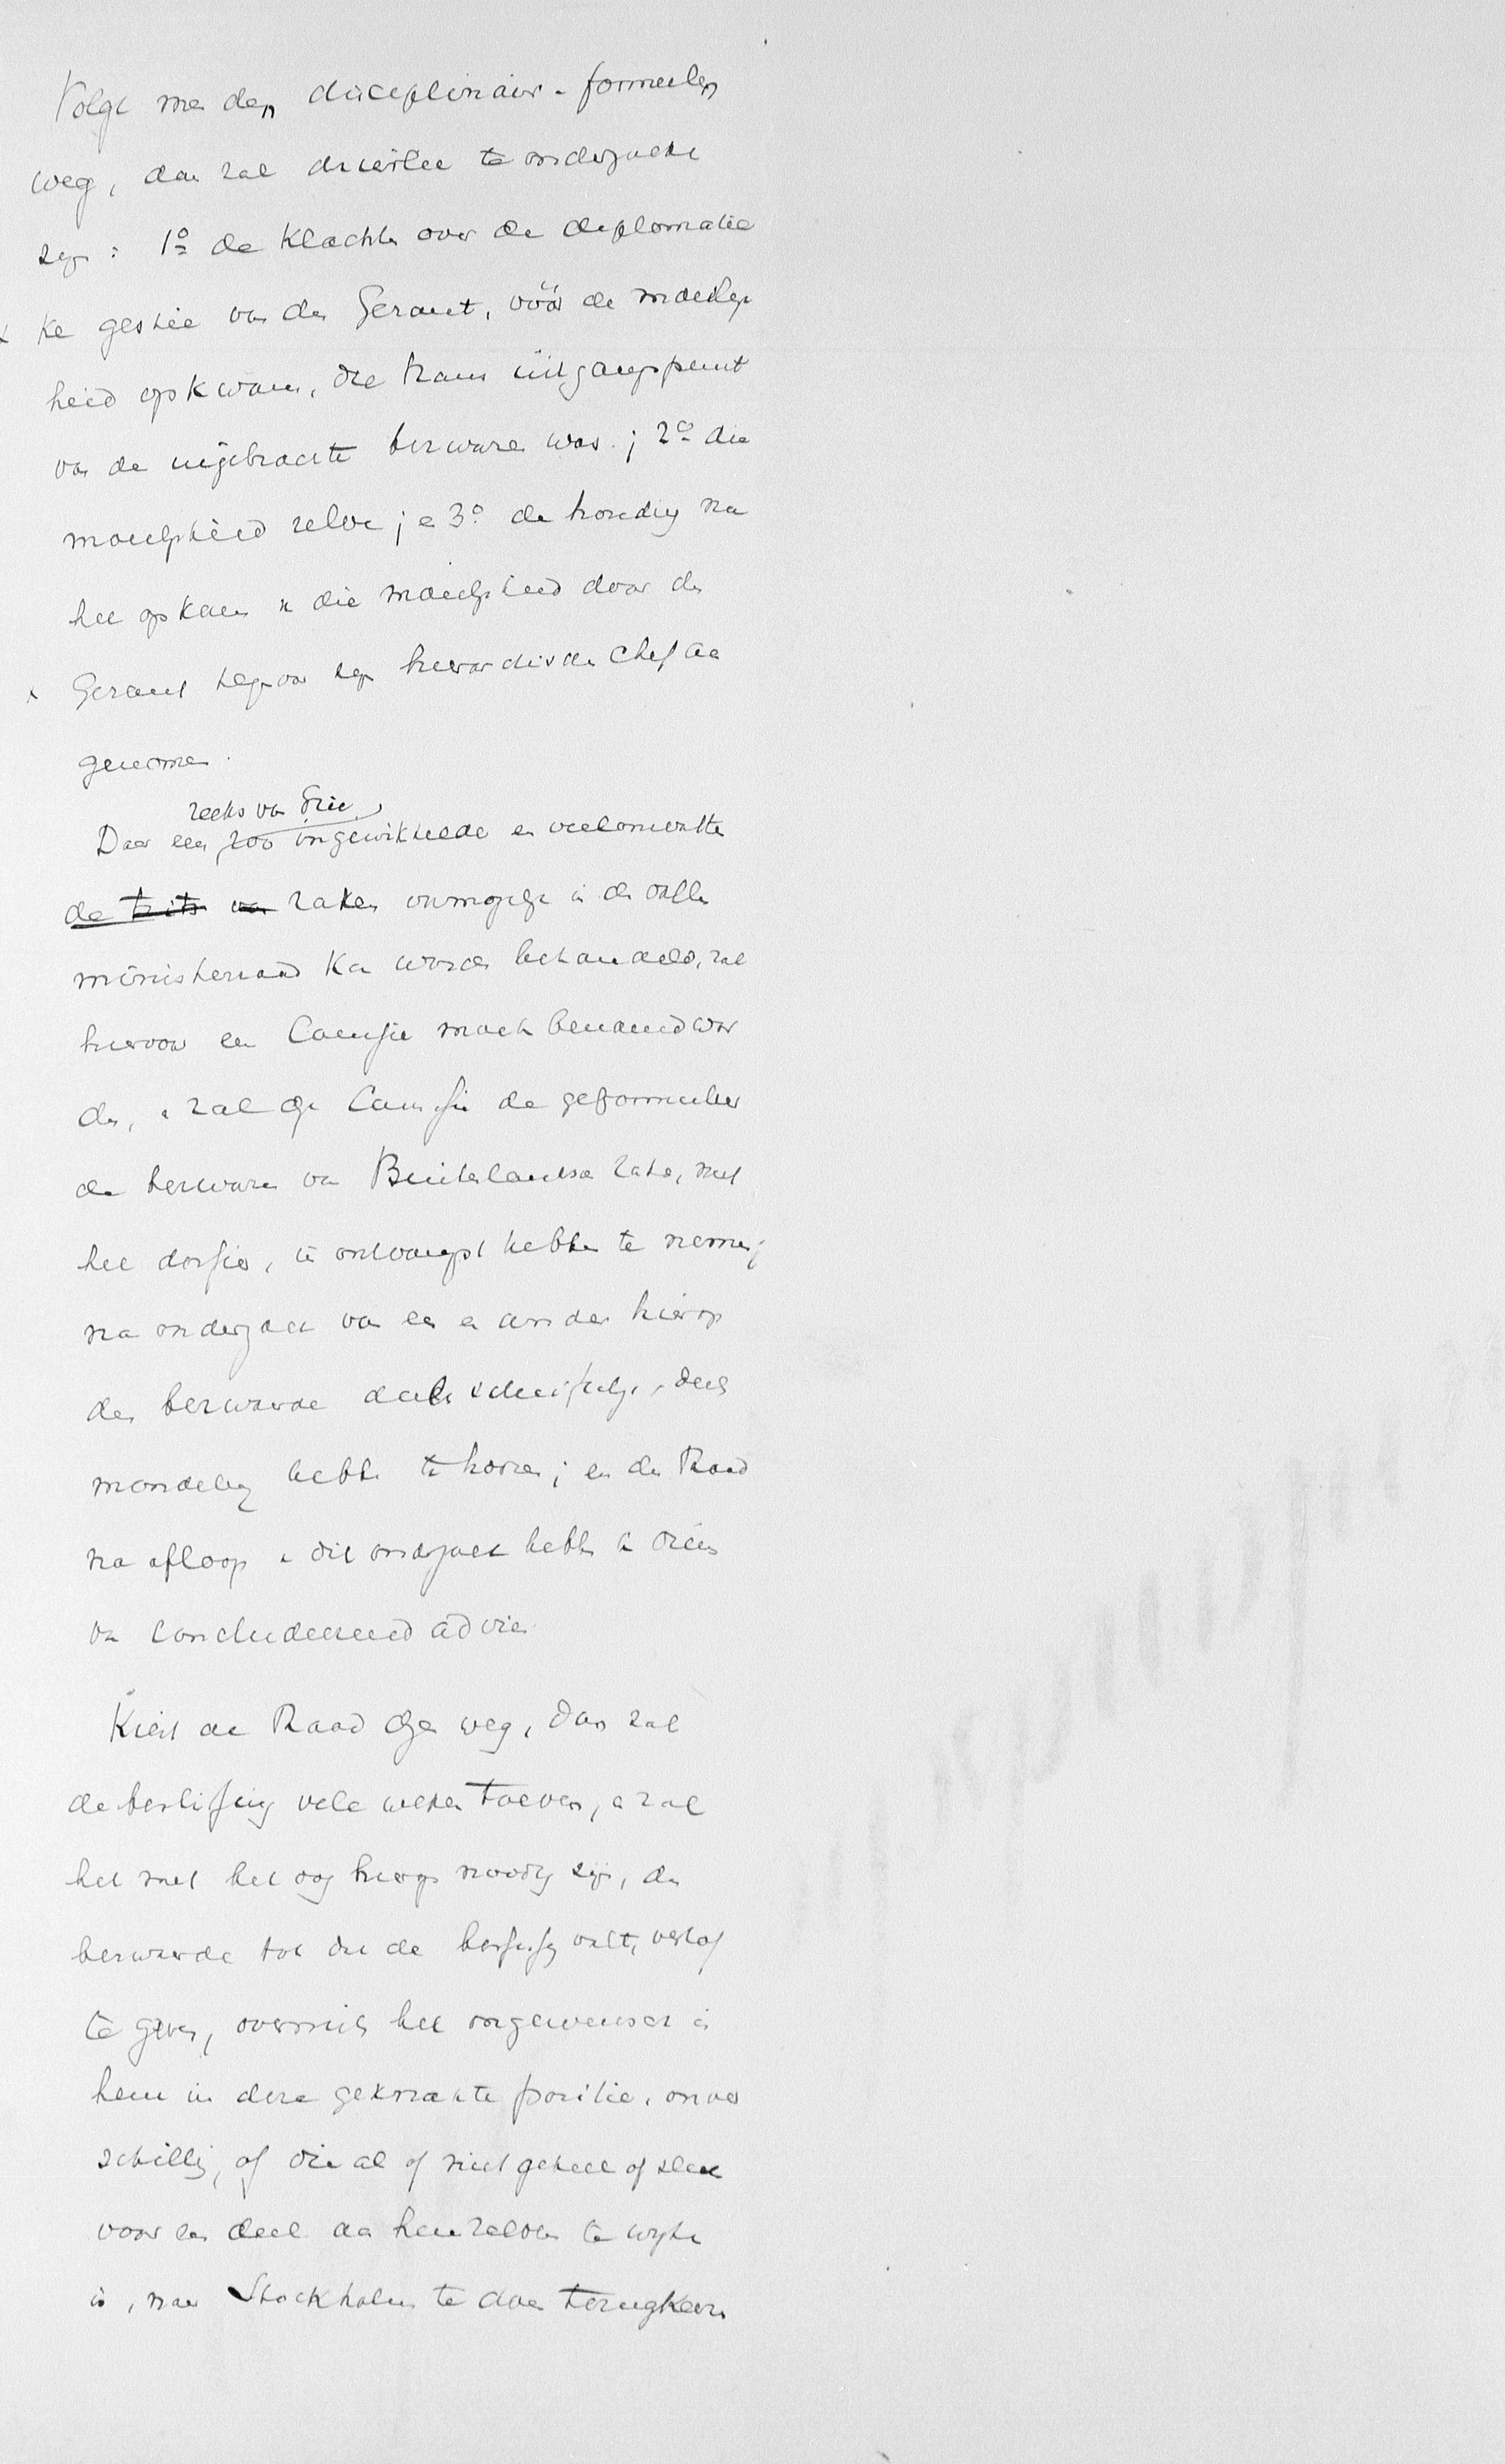 Volgt men den disciplinair-formeelen
weg, dan zal drieërlei te onderzoeken
zijn: 1º de klachten over de diplomatie
ke gestie van den Gerant, vóór de moeilijk
heid opkwam, die thans uitgangspunt
van de uitgebrachte bezwaren was; 2º die
moeilijkheid zelve; en 3º de houding na
het opkomen van die moeilijkheid door den
Gerant tegenover zijn hierarchischen Chef aan
genomen.
reeks van drie
Daar een zoo ingewikkelde en veelomvatten
de trits van zaken onmogelijk in den vollen
ministerraad kan worden behandeld, zal
hiervoor een Comissie moeten benoemd wor
den, en zal die Comissie de geformuleer
de bezwaren van Buitenlandse Zaken, met
het dossier, in ontvangst hebben te nemen;
na onderzoek van een en ander hierop
den bezwaarde deels schriftelijk, deels
mondeling hebben te hooren; en den Raad
na afloop van dit onderzoek hebben te dienen
van concludeerend advies.
Kiest de Raad dezen weg, dan zal
de beslissing vele weken toeven, en zal
het met het oog hierop noodig zijn, den
bezwaarde tot dat de beslissing valt, verlof
te geven, overmits het ongewenscht is
hem in deze geknakte positie, onver
schillig, of die al of niet geheel of slechts
voor een deel aan hem zelven te wijten
is, naar Stockholm te doen terugkeeren